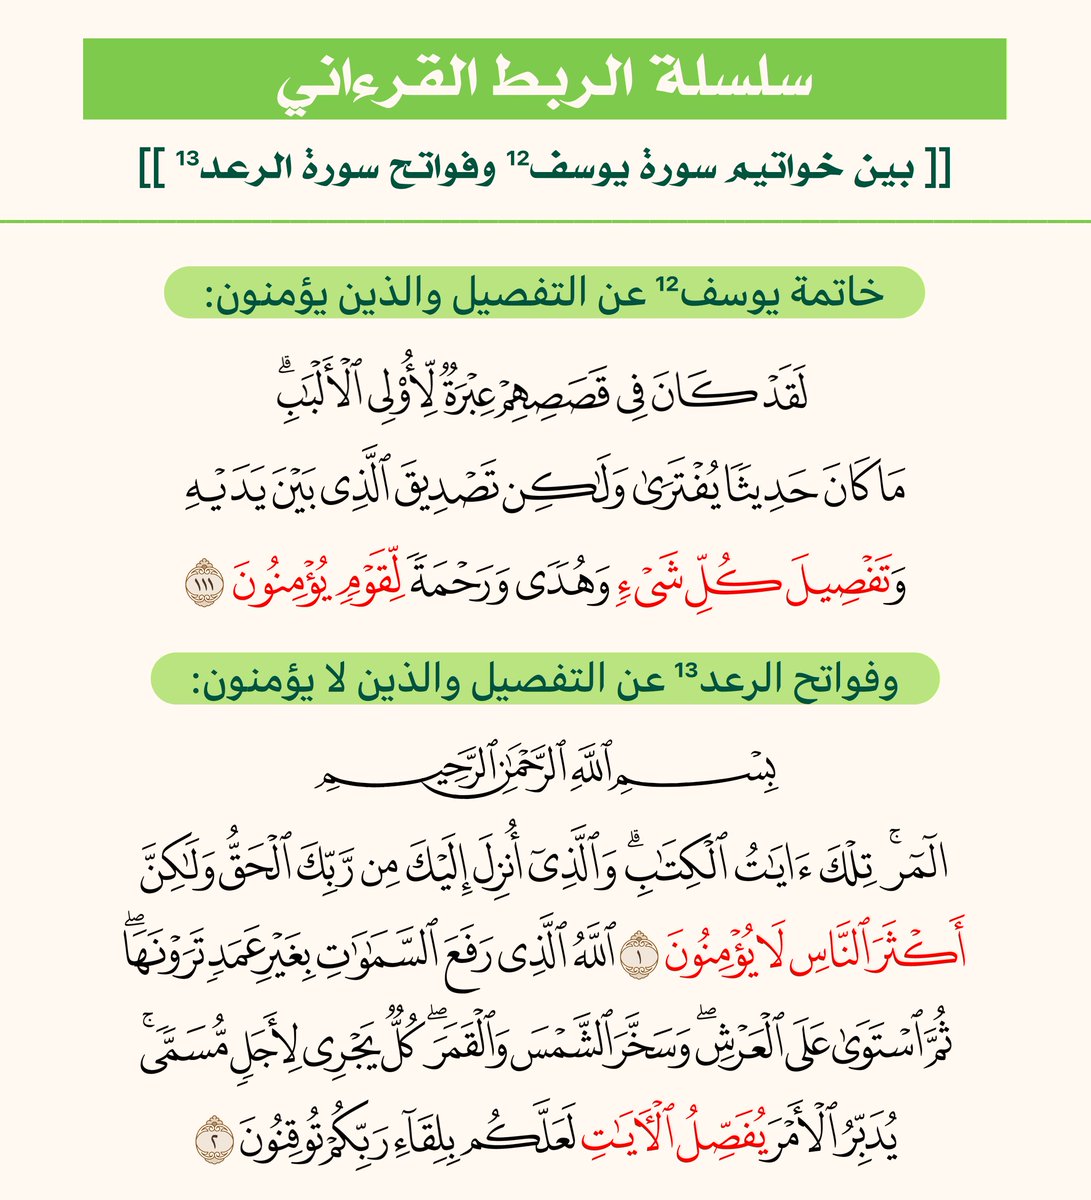 سلسلة الربط القرءاني
[[ بين خواتيم سورة يوسف¹² وفواتح سورة الرعد¹³ ]]
خاتمة يوسف¹² عن التفصيل والذين يؤمنون:
لَقَدْ كَانَ فِى قَصَصِهِمْ عِبْرَةٌ لِّأُو۟لِى ٱلْأَلْبَٰبِ ۗ
مَا كَانَ حَدِيثًا يُفْتَرَىٰ وَلَٰكِن تَصْدِيقَ ٱلَّذِى بَيْنَ يَدَيْهِ
وَتَفْصِيلَ كُلِّ شَىْءٍ وَهُدًى وَرَحْمَةً لِّقَوْمٍ يُؤْمِنُونَ ١١١
وفواتح الرعد¹³ عن التفصيل والذين لا يؤمنون:
بِسْمِ ٱللَّهِ ٱلرَّحْمَٰنِ ٱلرَّحِيمِ
الٓمٓر ۚ تِلْكَ ءَايَٰتُ ٱلْكِتَٰبِ ۗ وَٱلَّذِىٓ أُنزِلَ إِلَيْكَ مِن رَّبِّكَ ٱلْحَقُّ وَلَٰكِنَّ
أَكْثَرَ ٱلنَّاسِ لَا يُؤْمِنُونَ ١ ٱللَّهُ ٱلَّذِى رَفَعَ ٱلسَّمَٰوَٰتِ بِغَيْرِ عَمَدٍ تَرَوْنَهَا ۖ
ثُمَّ ٱسْتَوَىٰ عَلَى ٱلْعَرْشِ ۖ وَسَخَّرَ ٱلشَّمْسَ وَٱلْقَمَرَ ۖ كُلٌّ يَجْرِى لِأَجَلٍ مُّسَمًّى ۚ
يُدَبِّرُ ٱلْأَمْرَ يُفَصِّلُ ٱلْءَايَٰتِ لَعَلَّكُم بِلِقَآءِ رَبِّكُمْ تُوقِنُونَ ٢